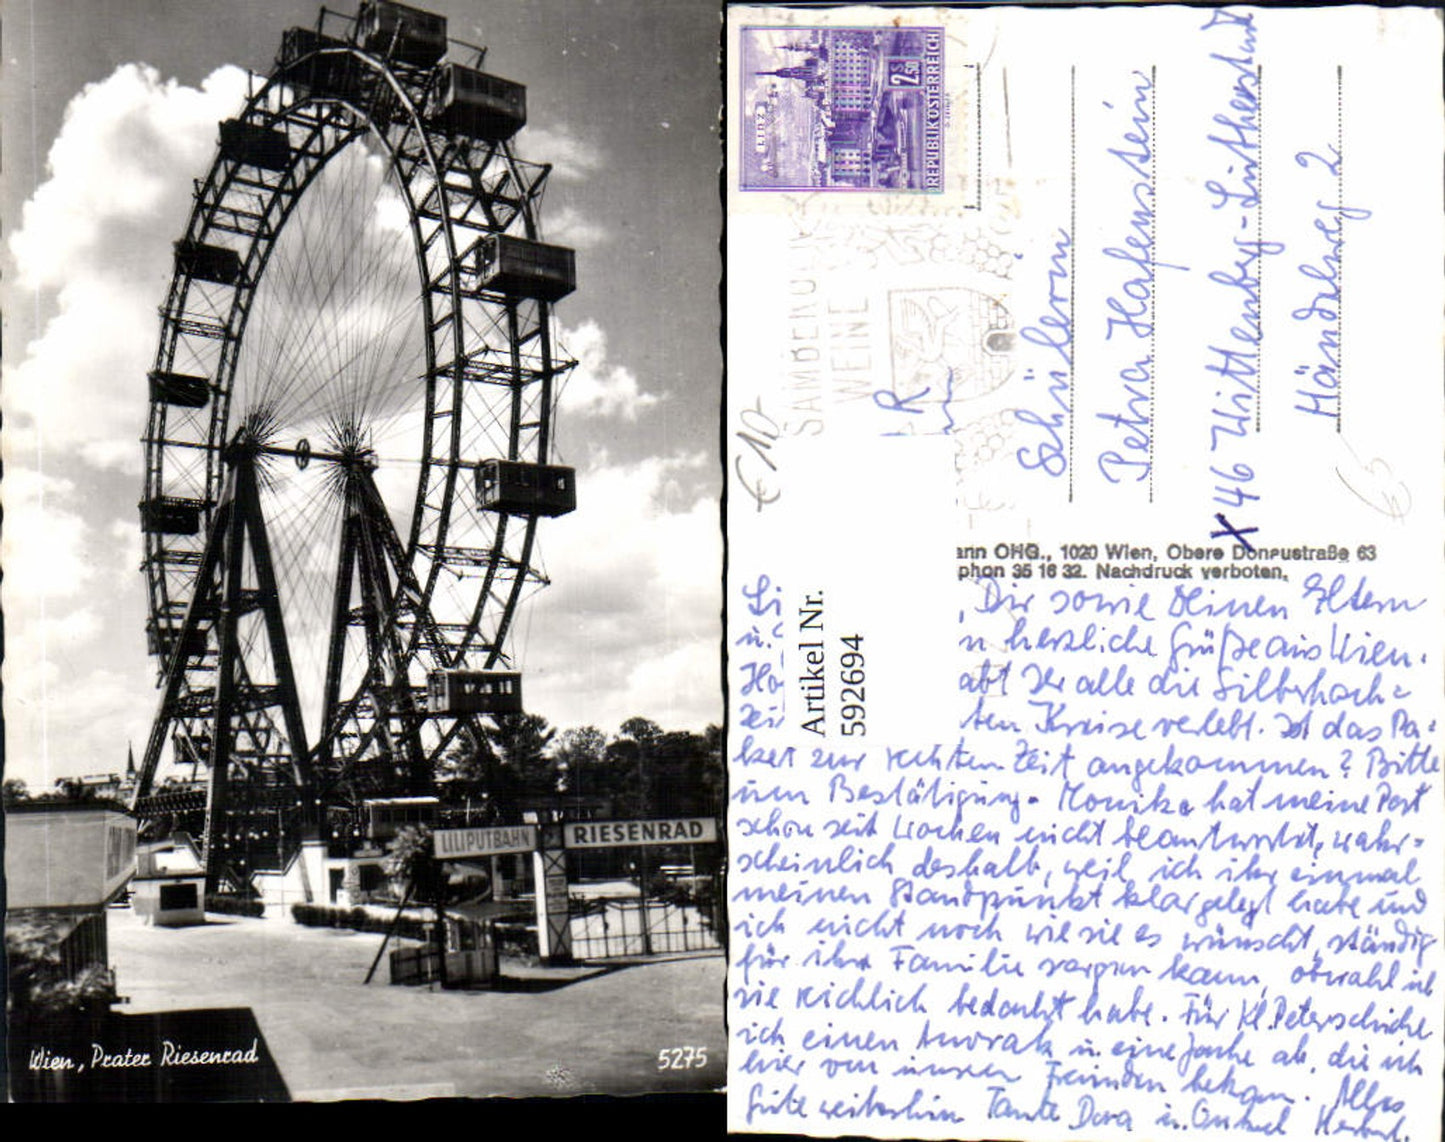 LILIPUTBAHN
RIESENRAD
Wien, Prater Riesenrad
5275
LINZ
S 2.50
REPUBLIK ÖSTERREICH
WEINE
€ 10,-
R
Schülerin
Petra Hafenstein
X 46 Wittenberg-Lutherstadt
Händelweg 2
€5
ann OHG., 1020 Wien, Obere Donaustraße 63
phon 35 16 32. Nachdruck verboten.
Artikel Nr.
592694
Li , Dir sowie Deinen Eltern
u. n herzliche Grüße aus Wien.
Ha abt Ihr alle die Silberhoch=
zei ten Kreise verlebt. Ist das Pa=
ket zur rechten Zeit angekommen? Bitte
um Bestätigung. Monika hat meine Post
schon seit Wochen nicht beantwortet, wahr=
scheinlich deshalb, weil ich ihr einmal
meinen Standpunkt klargelegt habe und
ich nicht noch wie sie es wünscht, ständig
für ihre Familie sorgen kann, obwohl ich
sie reichlich bedacht habe. Für Kl. Peter schicke
ich einen Anorak u. eine Jacke ab, die ich
hier von unseren Freunden bekam. Alles
Gute weiterhin Tante Dora u. Onkel Herbert.